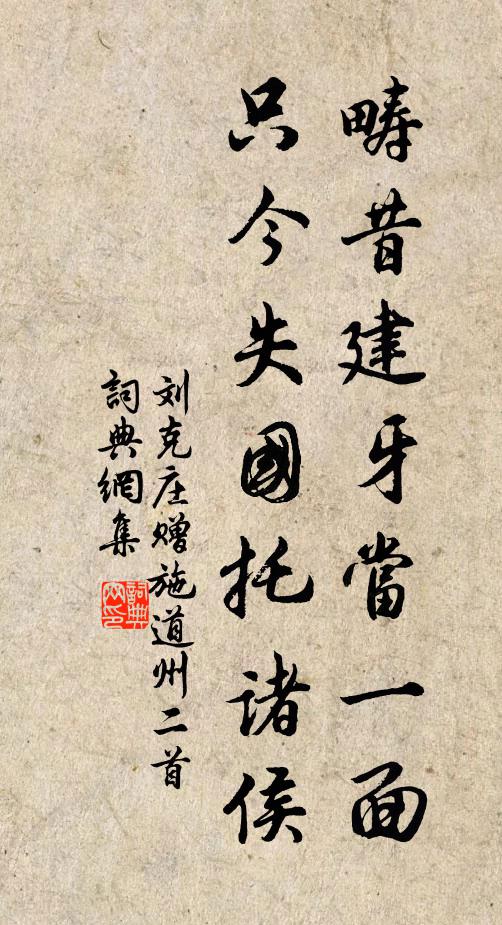 畴昔建牙當一面
只今失國托诸侯
刘克庄赠施道州二首
詞典網集
詞典網印